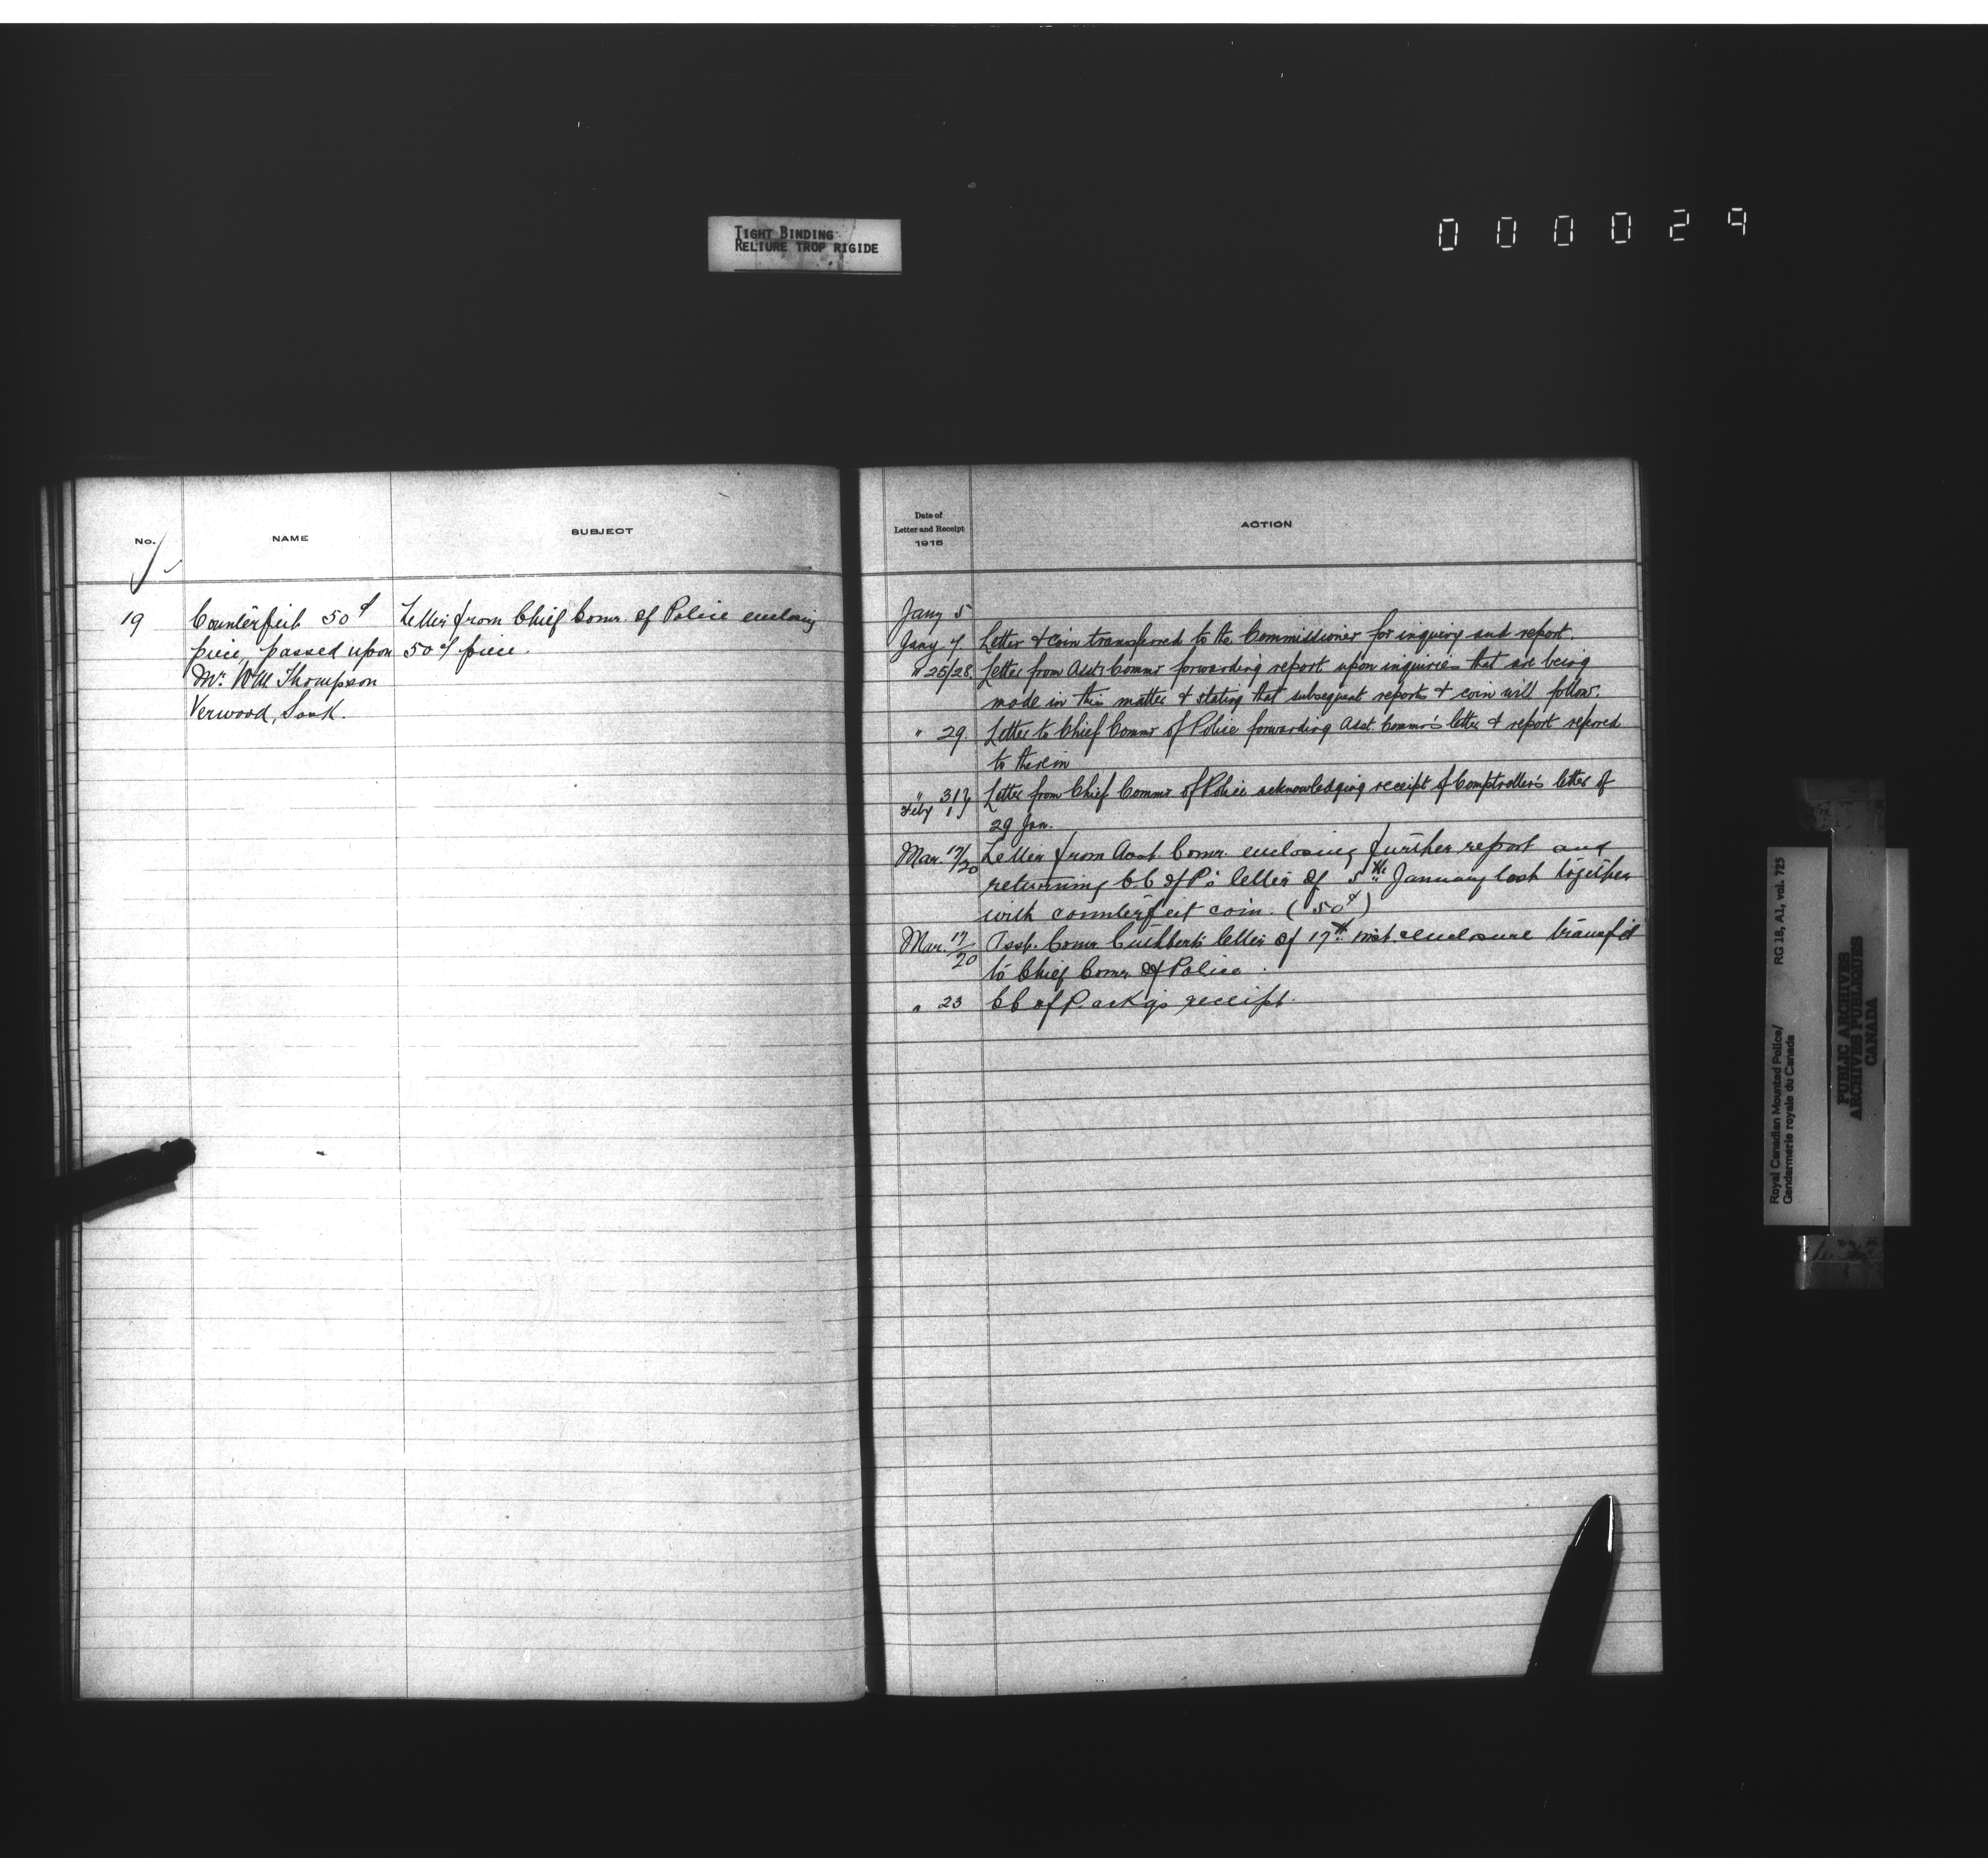 TIGHT BINDING
RELIURE TROP RIGIDE
000029
No.
NAME
SUBJECT
19
Counterfeit 50¢
piece, passed upon
Mr. Wm Thompson
Verwood, Sask.
Letter from Chief Comr. of Police enclosing
50¢ piece.
Date of
Letter and Receipt
1915
ACTION
Jany 5
Jany 7. Letter & coin transferred to the Commissioner for inquiry and report.
" 25/28. Letter from Asst Commr forwarding report upon inquiries that are being
made in this matter & stating that subsequent reports & coin will follow.
" 29. Letter to Chief Commr of Police forwarding Asst. Commr's letter & report refered
to therein
" 31} Letter from Chief Commr of Police acknowledging receipt of Comptroller's letter of
Feby 1} 29 Jan.
Mar. 17/20 Letter from Asst. Comr. enclosing further report and
returning C C of P's letter of 5th January last together
with counterfeit coin. (50¢)
Mar. 17/20 Asst. Comr. Cuthbert's letter of 17th inst. & enclosure transf'd
to Chief Comr. of Police.
" 23 C C of P. ackg's receipt.
Royal Canadian Mounted Police/
Gendarmerie royale du Canada
RG 18, A1, vol. 725
PUBLIC ARCHIVES
ARCHIVES PUBLIQUES
CANADA